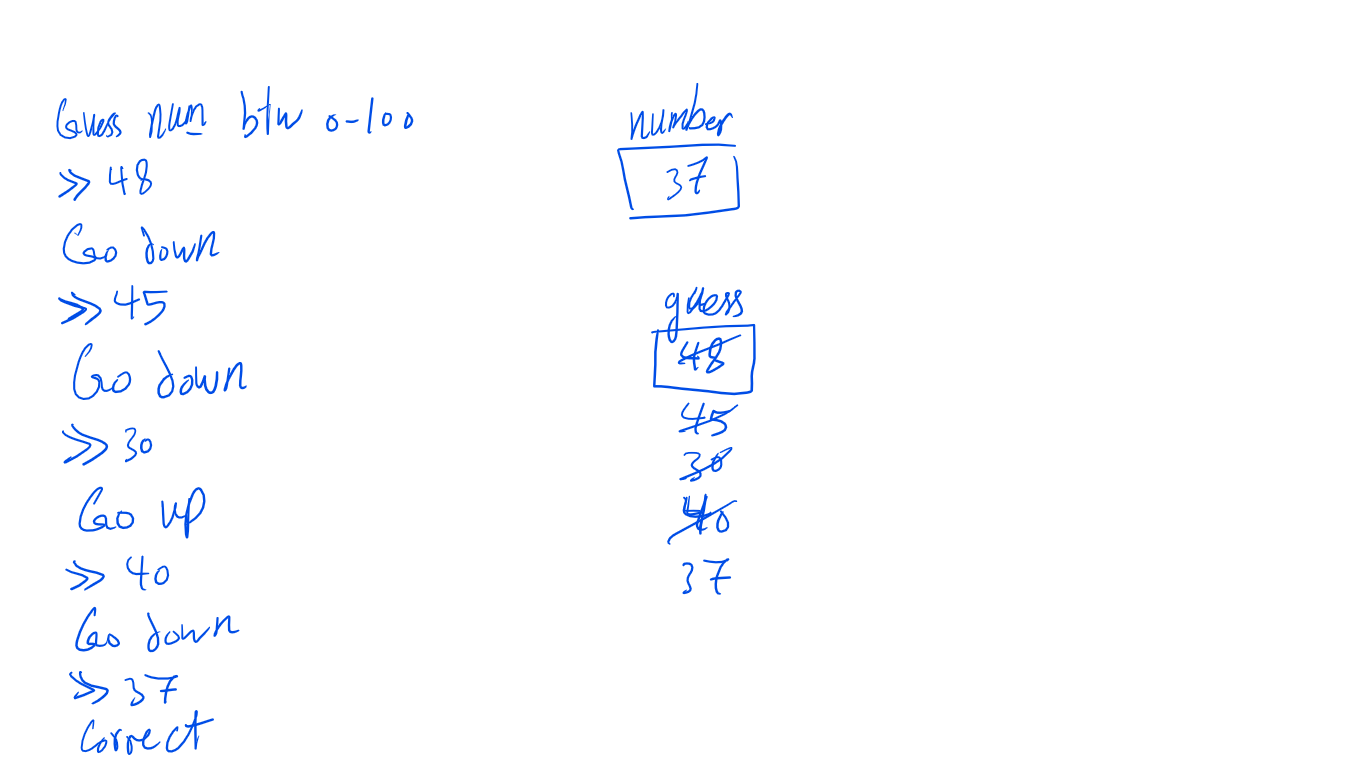 Guess num btw 0-100
>> 48
Go down
>> 45
Go down
>> 30
Go up
>> 40
Go down
>> 37
Correct
number
37
guess
48
45
30
40
37